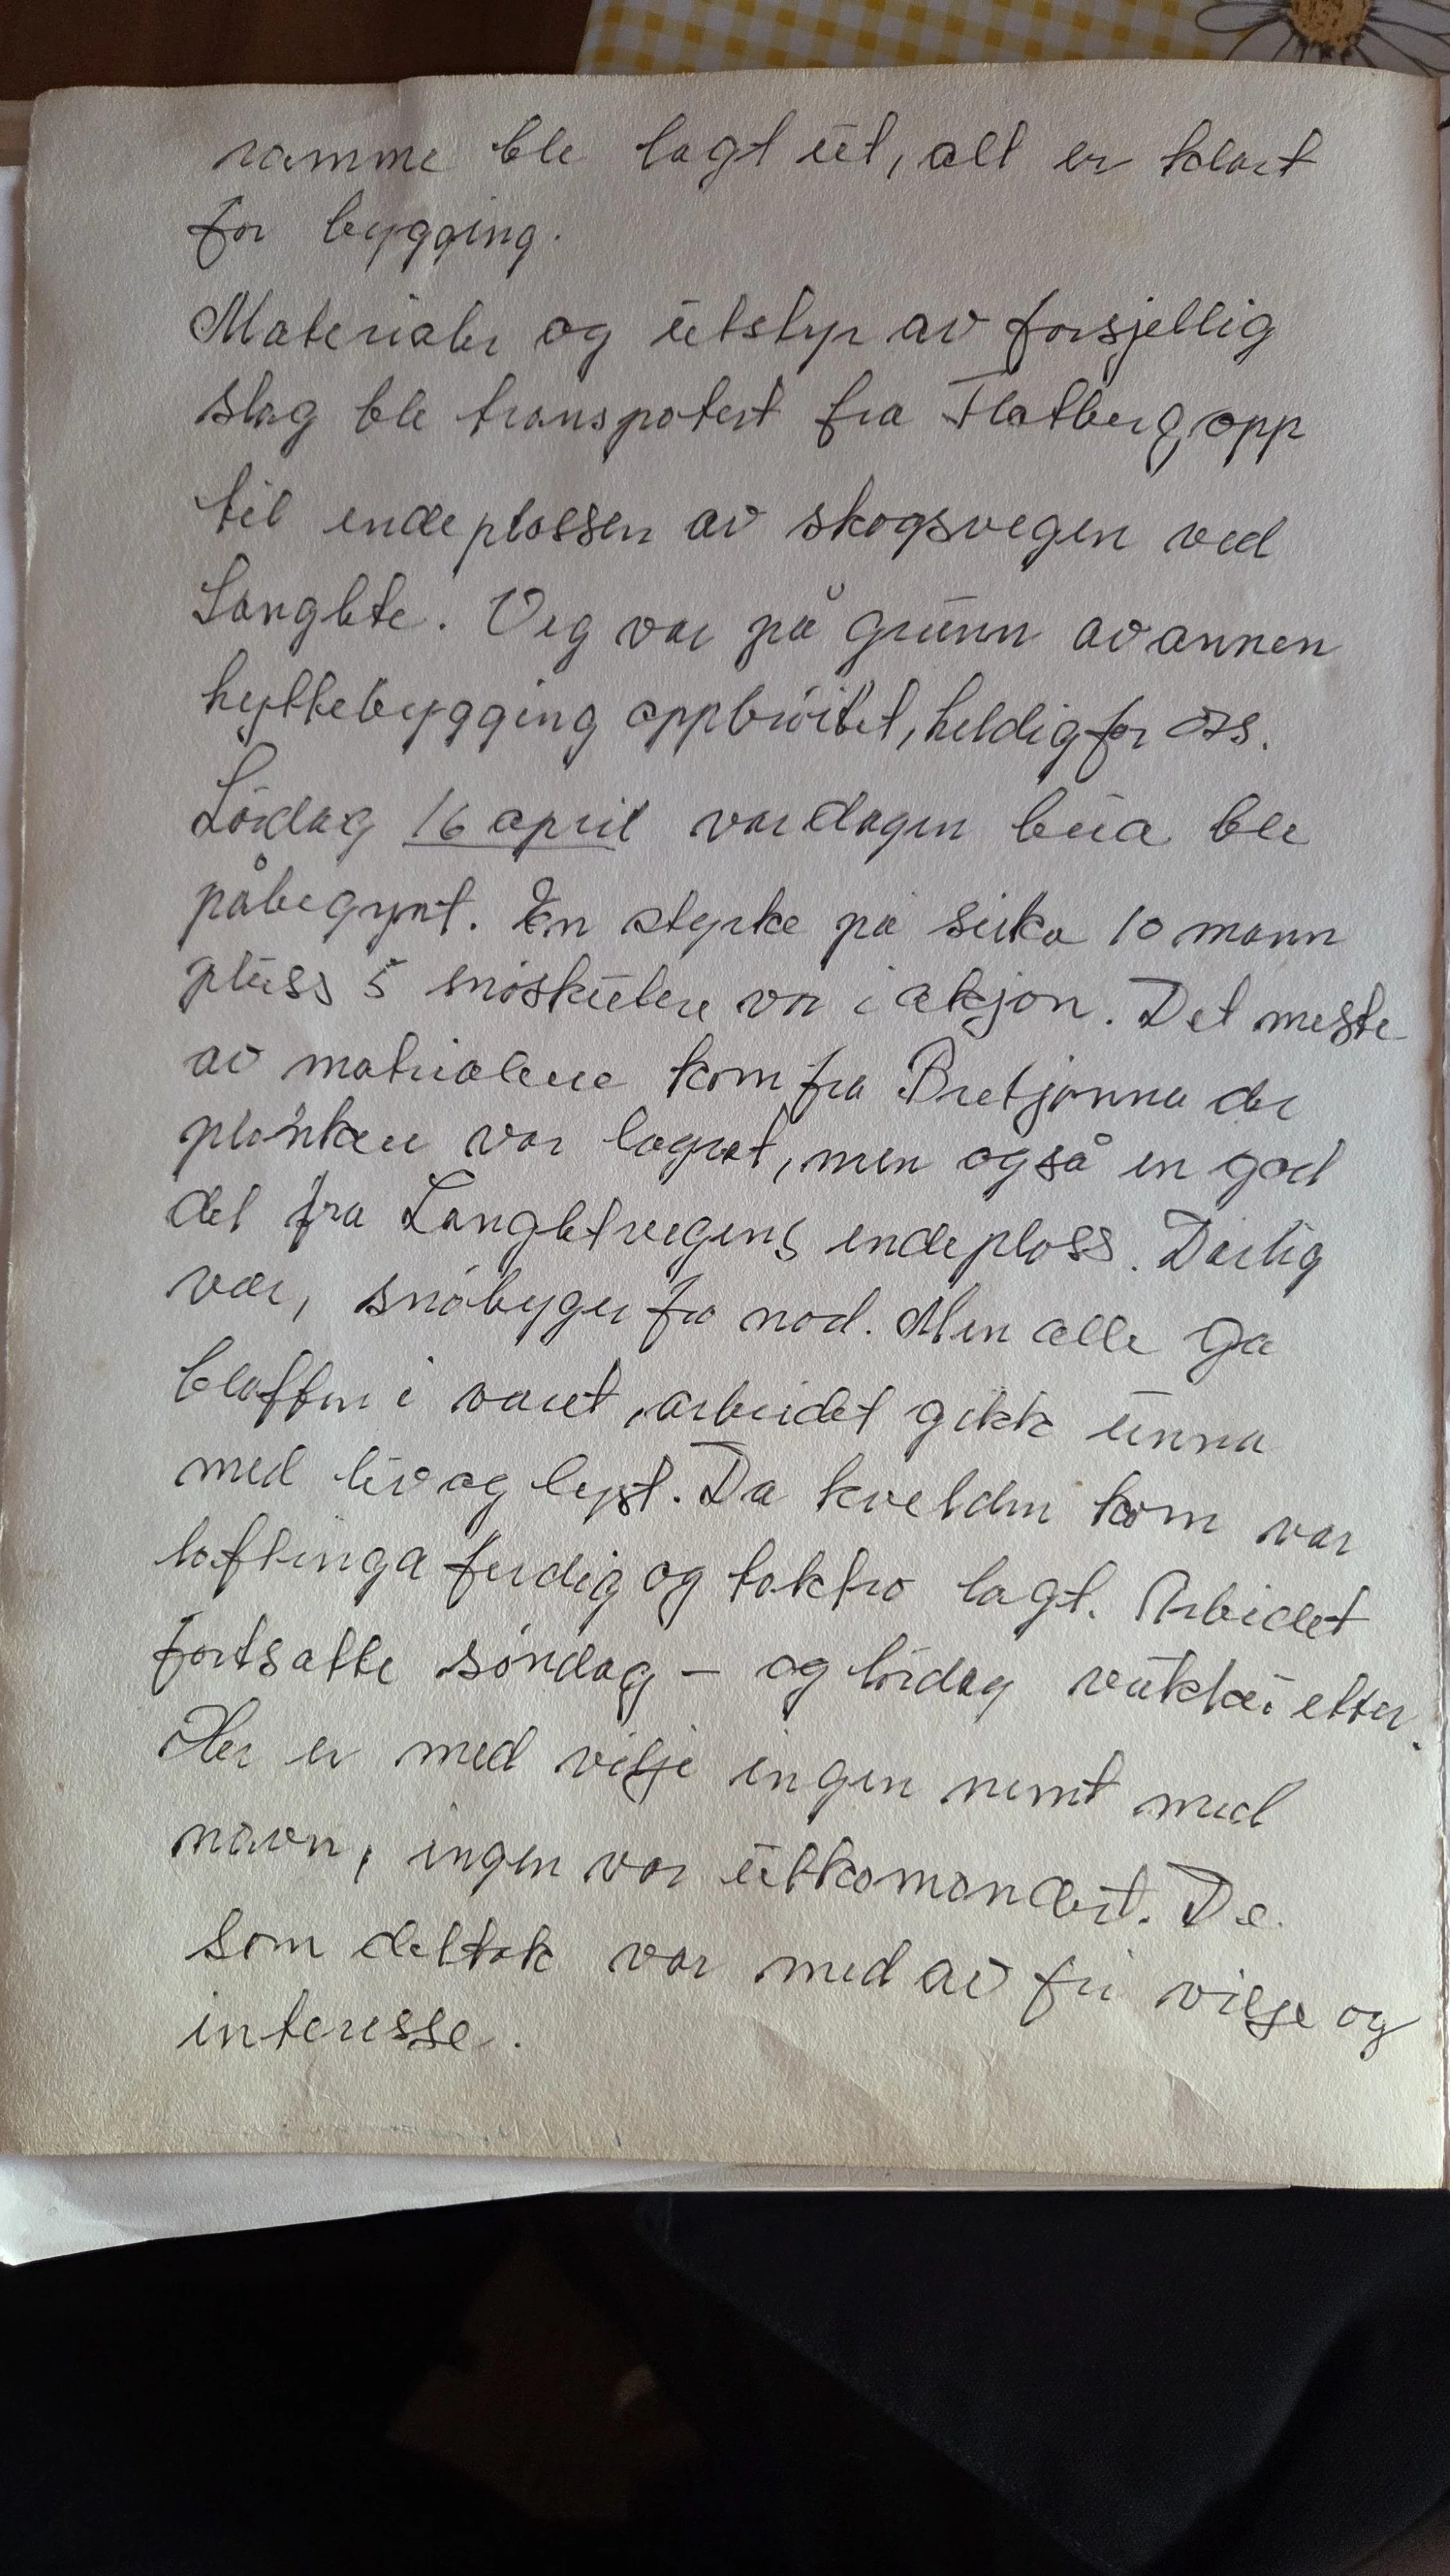 ramme ble lagt ut, alt er klart
for bygging.
Materialer og utstyr av forsjellig
slag ble transpotert fra Flatberg opp
til endeplassen av skogsvegen ved
Langlete. Veg var på grunn av annen
hyttebygging oppbrøitet, heldig for oss.
Lørdag 16 april var dagen bua ble
påbegynt. En styrke på sirka 10 mann
pluss 5 snøskutere var i aksjon. Det meste
av matrialene kom fra Bretjønna der
plankene var lagret, men også en god
del fra Langletvegens endeplass. Dårlig
vær, snøbyger fra nord. Men alle ga
blaffen i været, arbeidet gikk unna
med liv og lyst. Da kvelden kom var
laftinga ferdig og taktro lagt. Arbeidet
fortsatte søndag – og lørdag vukka etter.
Her er med vilje ingen nemt med
navn, ingen var utkomandert. De
som deltok var med av fri vilje og
interesse.